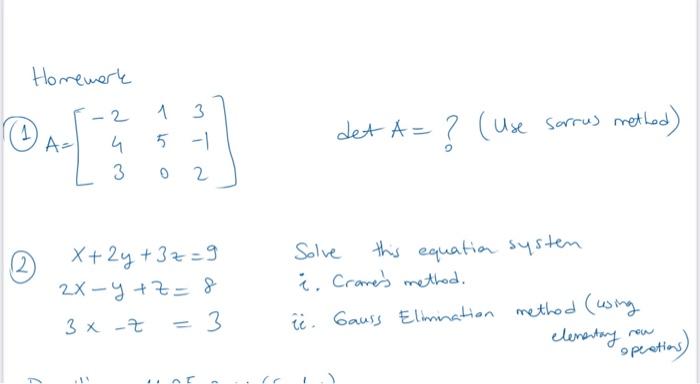 Homework
① A= [ -2 1 3
4 5 -1
3 0 2 ] det A = ? (Use sarrus method)
② x+2y+3z=9 Solve this equation system
2x-y+z=8 i. Cramer's method.
3x-z = 3 ii. Gauss Elimination method (using
elementary row
operations)